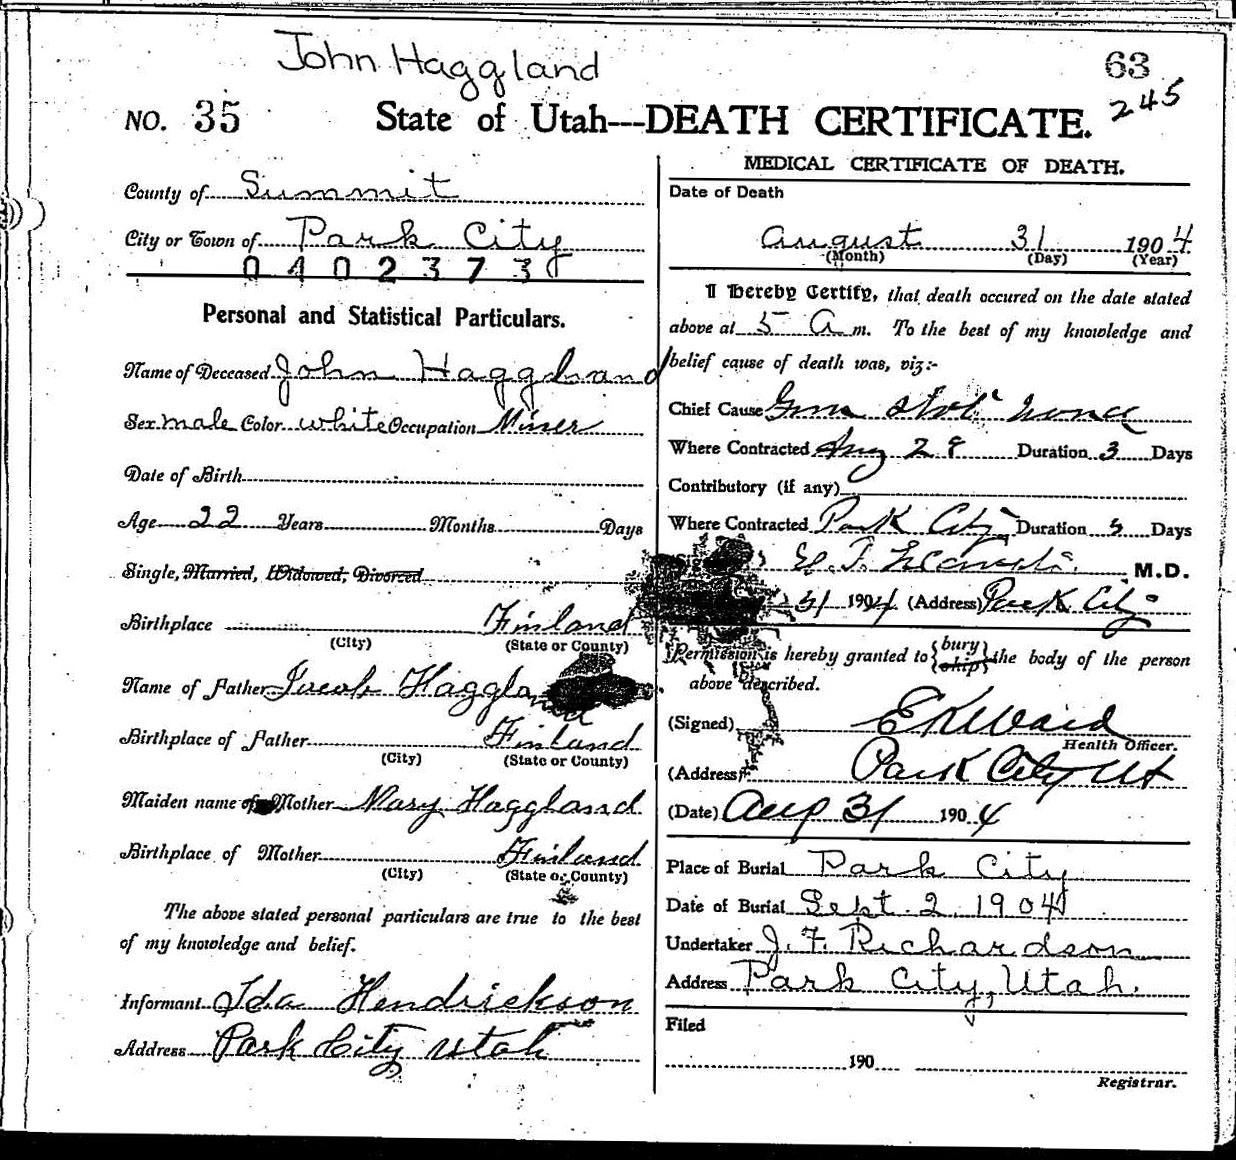 John Haggland
63
245
NO. 35 State of Utah---DEATH CERTIFICATE.
County of Summit
City or Town of Park City
0402373
Personal and Statistical Particulars.
Name of Deceased John Haggland
Sex male Color white Occupation Miner
Date of Birth
Age 22 Years Months Days
Single, Married, Widowed, Divorced
Birthplace Finland
(City) (State or County)
Name of Father Jacob Haggland
Birthplace of Father Finland
(City) (State or County)
Maiden name of Mother Mary Haggland
Birthplace of Mother Finland
(City) (State or County)
The above stated personal particulars are true to the best
of my knowledge and belief.
Informant Ida Hendrickson
Address Park City Utah
MEDICAL CERTIFICATE OF DEATH.
Date of Death
August 31 1904
(Month) (Day) (Year)
I Hereby Certify, that death occured on the date stated
above at 5 A m. To the best of my knowledge and
belief cause of death was, viz:-
Chief Cause Gun shot
Where Contracted Aug 28 Duration 3 Days
Contributory (if any)
Where Contracted Park City Duration Days
M.D.
31 1904 (Address) Park City
Permission is hereby granted to {bury ship} the body of the person
above described.
(Signed) E K Waid
Health Officer.
(Address) Park City Ut
(Date) Aug 31 1904
Place of Burial Park City
Date of Burial Sept. 2, 1904
Undertaker J. F. Richardson
Address Park City, Utah.
Filed
190
Registrar.